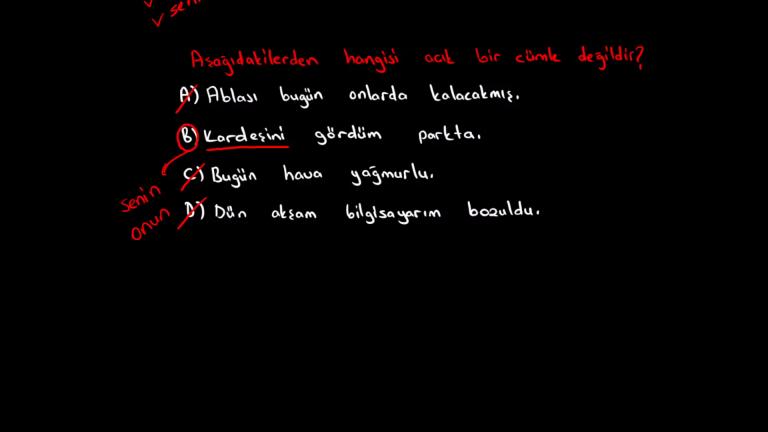 Aşağıdakilerden hangisi açık bir cümle değildir?
A) Ablası bugün onlarda kalacakmış.
B) Kardeşini gördüm parkta.
C) Bugün hava yağmurlu.
senin
D) Dün akşam bilgisayarım bozuldu.
onun